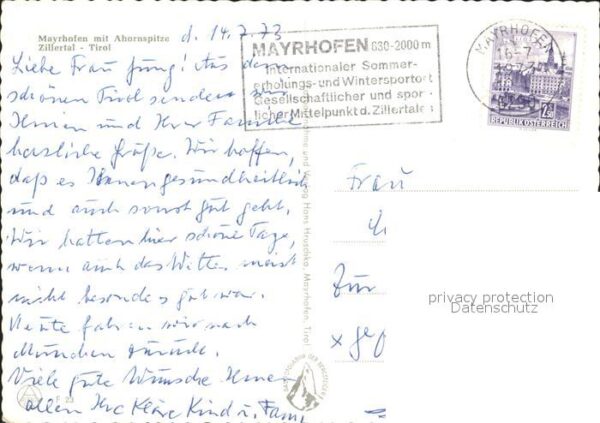 Mayrhofen mit Ahornspitze
Zillertal - Tirol
d. 14.7.73
Liebe Frau Jung! Aus dem
schönen Tirol senden wir
Ihnen und Ihrer Familie
herzliche Grüße. Wir hoffen,
daß es Ihnen gesundheitlich
und auch sonst gut geht.
Wir hatten hier schöne Tage,
wenn auch das Wetter meist
nicht besonders gut war.
Heute fahren wir nach
München zurück.
Viele gute Wünsche Ihnen
allen Ihre Kläre Kind u. Fam.
MAYRHOFEN 630-2000m
Internationaler Sommer-
erholungs- und Wintersportort
Gesellschaftlicher und spor-
licher Mittelpunkt d. Zillertales
MAYRHOFEN
REPUBLIK ÖSTERREICH
Verlag Hans Hruschka, Mayrhofen, Tirol
Frau
privacy protection
Datenschutz